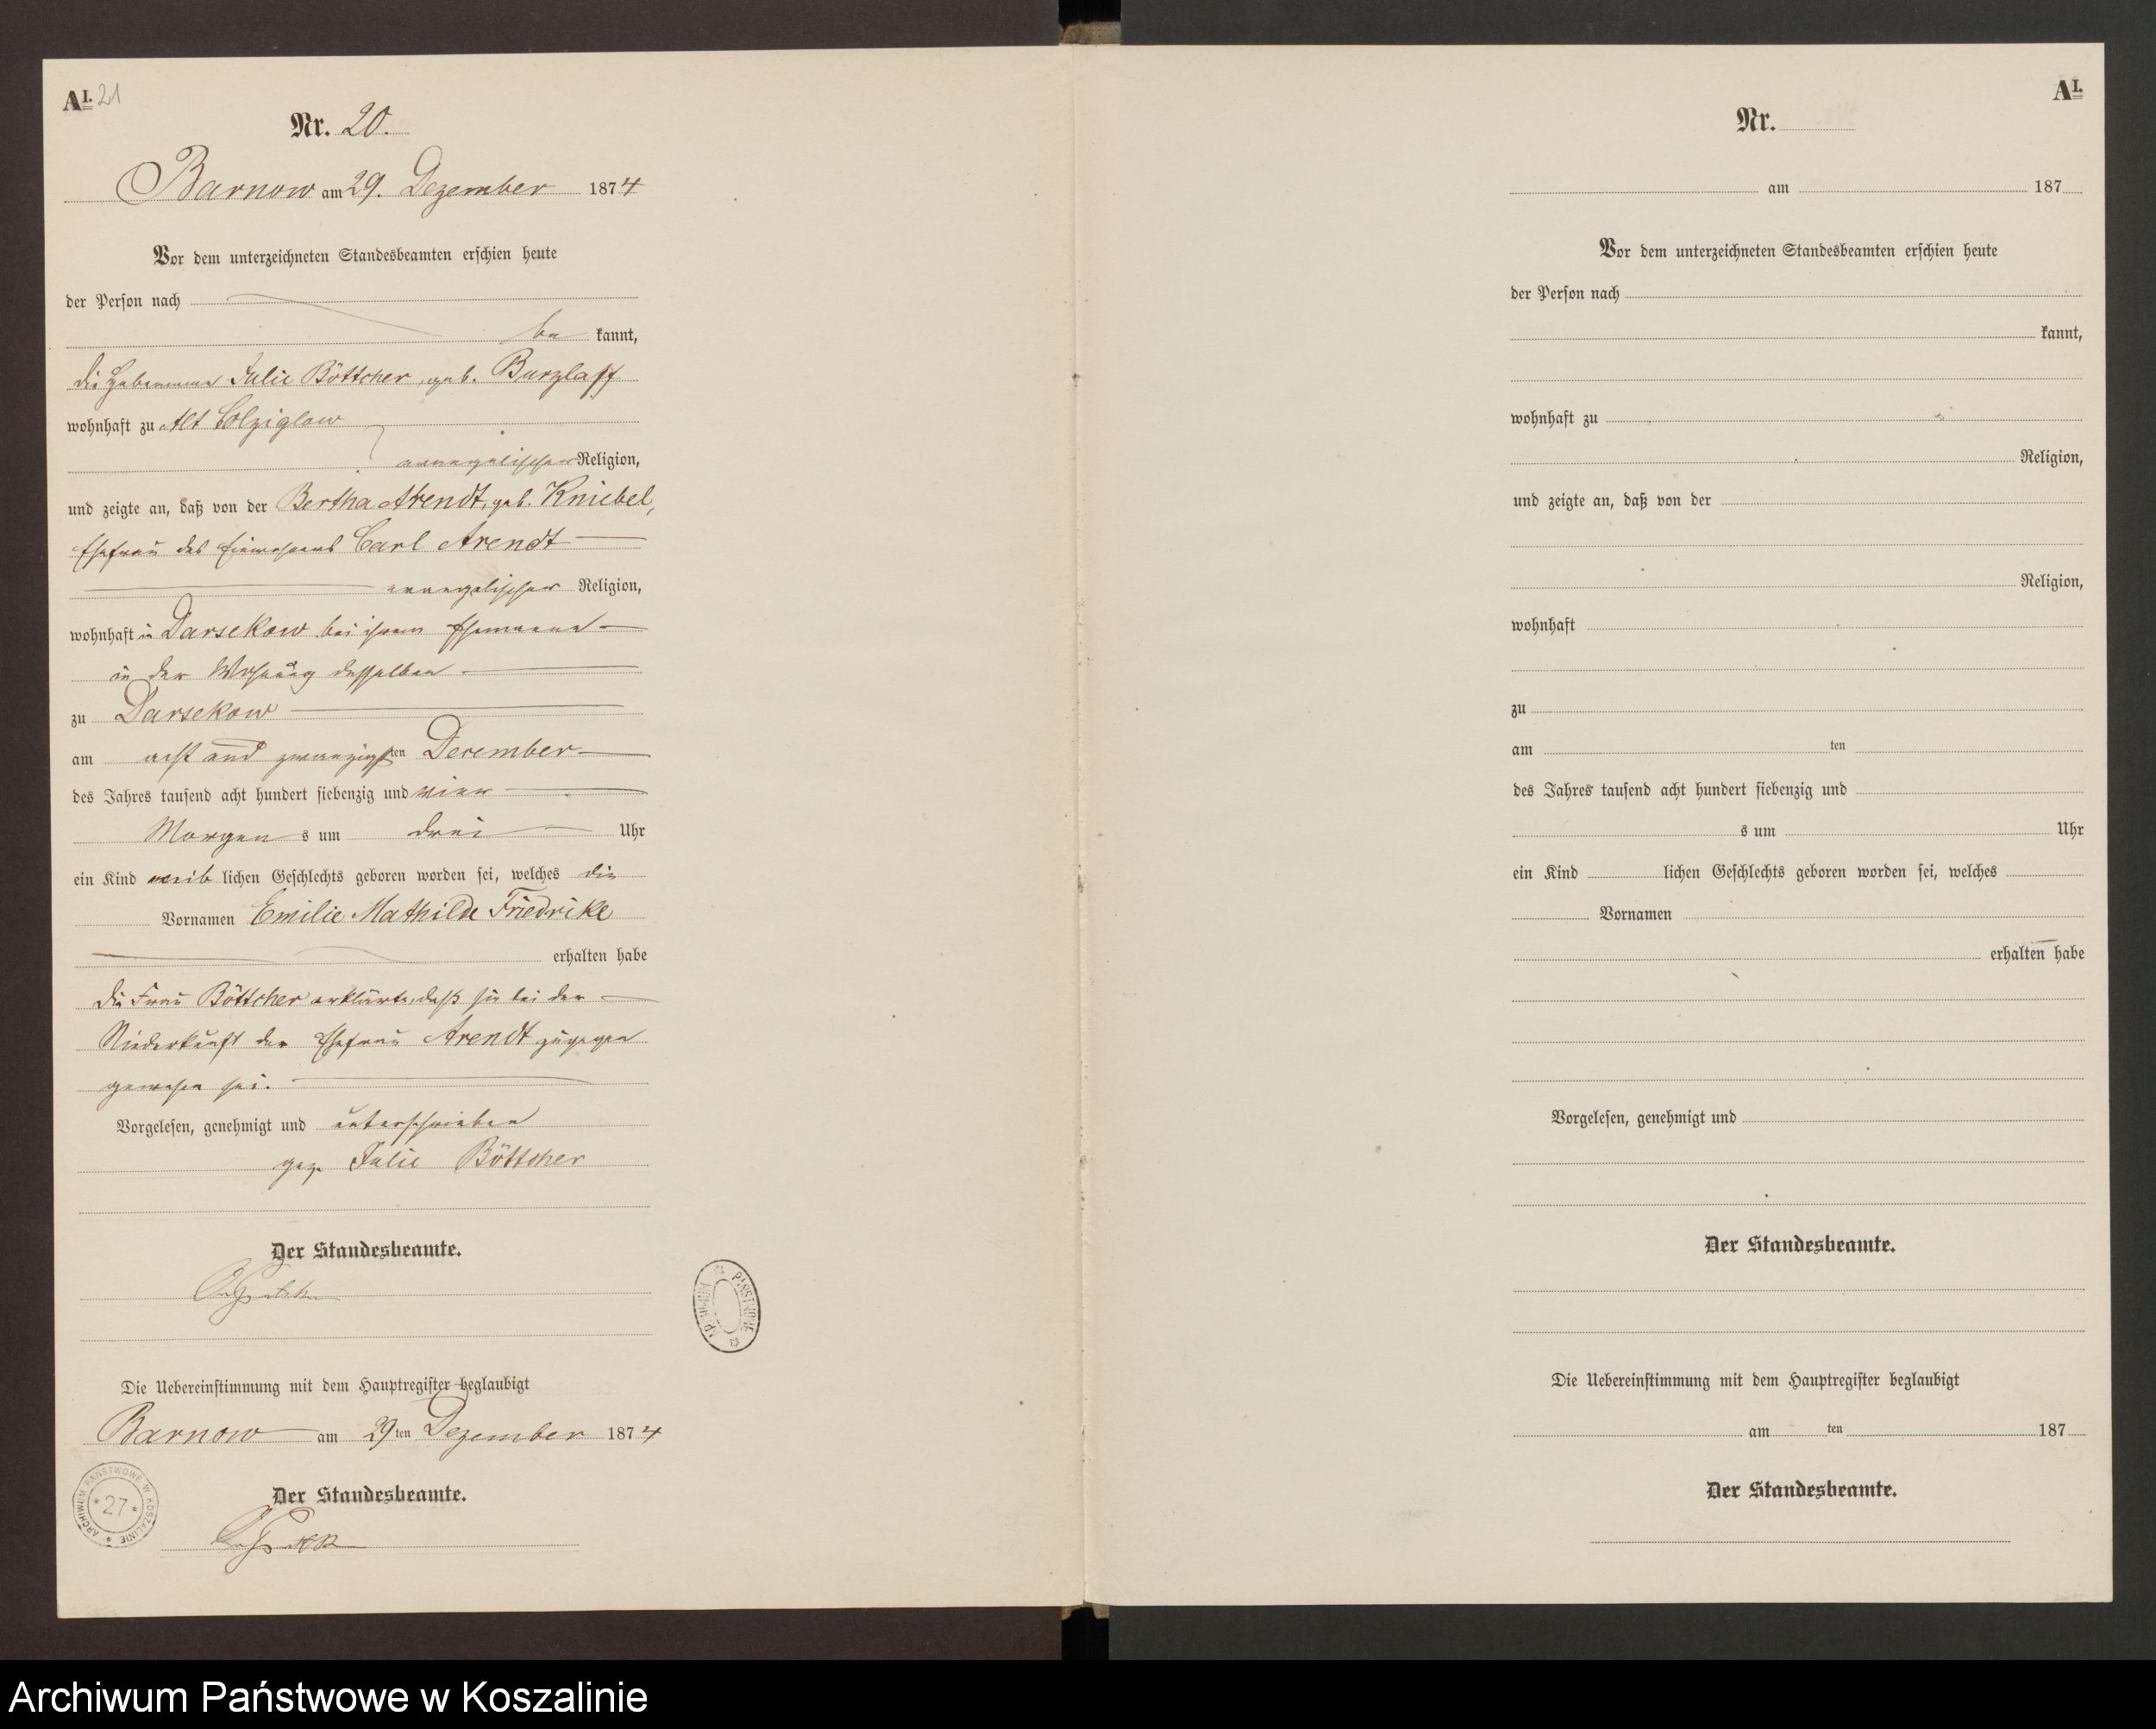 A I. 21
Nr. 20.
Barnow am 29. Dezember 1874
Vor dem unterzeichneten Standesbeamten erschien heute
der Person nach
be kannt,
die Hebamme Julie Böttcher, geb. Burzlaff
wohnhaft zu Alt Colziglow
evangelischer Religion,
und zeigte an, daß von der Bertha Arendt, geb. Kniebel,
Ehefrau des Einwohners Carl Arendt
evangelischer Religion,
wohnhaft in Darsekow bei ihrem Ehemanne
in der Wohnung desselben
zu Darsekow
am acht und zwanzigsten December
des Jahres tausend acht hundert siebenzig und vier
Morgens um drei Uhr
ein Kind weiblichen Geschlechts geboren worden sei, welches die
Vornamen Emilie Mathilde Friedrike
erhalten habe
die Frau Böttcher erklärte, daß sie bei der
Niederkunft der Ehefrau Arendt zugegen
gewesen sei.
Vorgelesen, genehmigt und unterschrieben
gez. Julie Böttcher
Der Standesbeamte.
Die Uebereinstimmung mit dem Hauptregister beglaubigt
Barnow am 29ten Dezember 1874
Der Standesbeamte.
ARCHIWUM PAŃSTWOWE W KOSZALINIE
* 27 *
ARCHIWUM PAŃSTWOWE
A I.
Nr.
am 187
Vor dem unterzeichneten Standesbeamten erschien heute
der Person nach
kannt,
wohnhaft zu
Religion,
und zeigte an, daß von der
Religion,
wohnhaft
zu
am ten
des Jahres tausend acht hundert siebenzig und
s um Uhr
ein Kind lichen Geschlechts geboren worden sei, welches
Vornamen
erhalten habe
Vorgelesen, genehmigt und
Der Standesbeamte.
Die Uebereinstimmung mit dem Hauptregister beglaubigt
am ten 187
Der Standesbeamte.
Archiwum Państwowe w Koszalinie